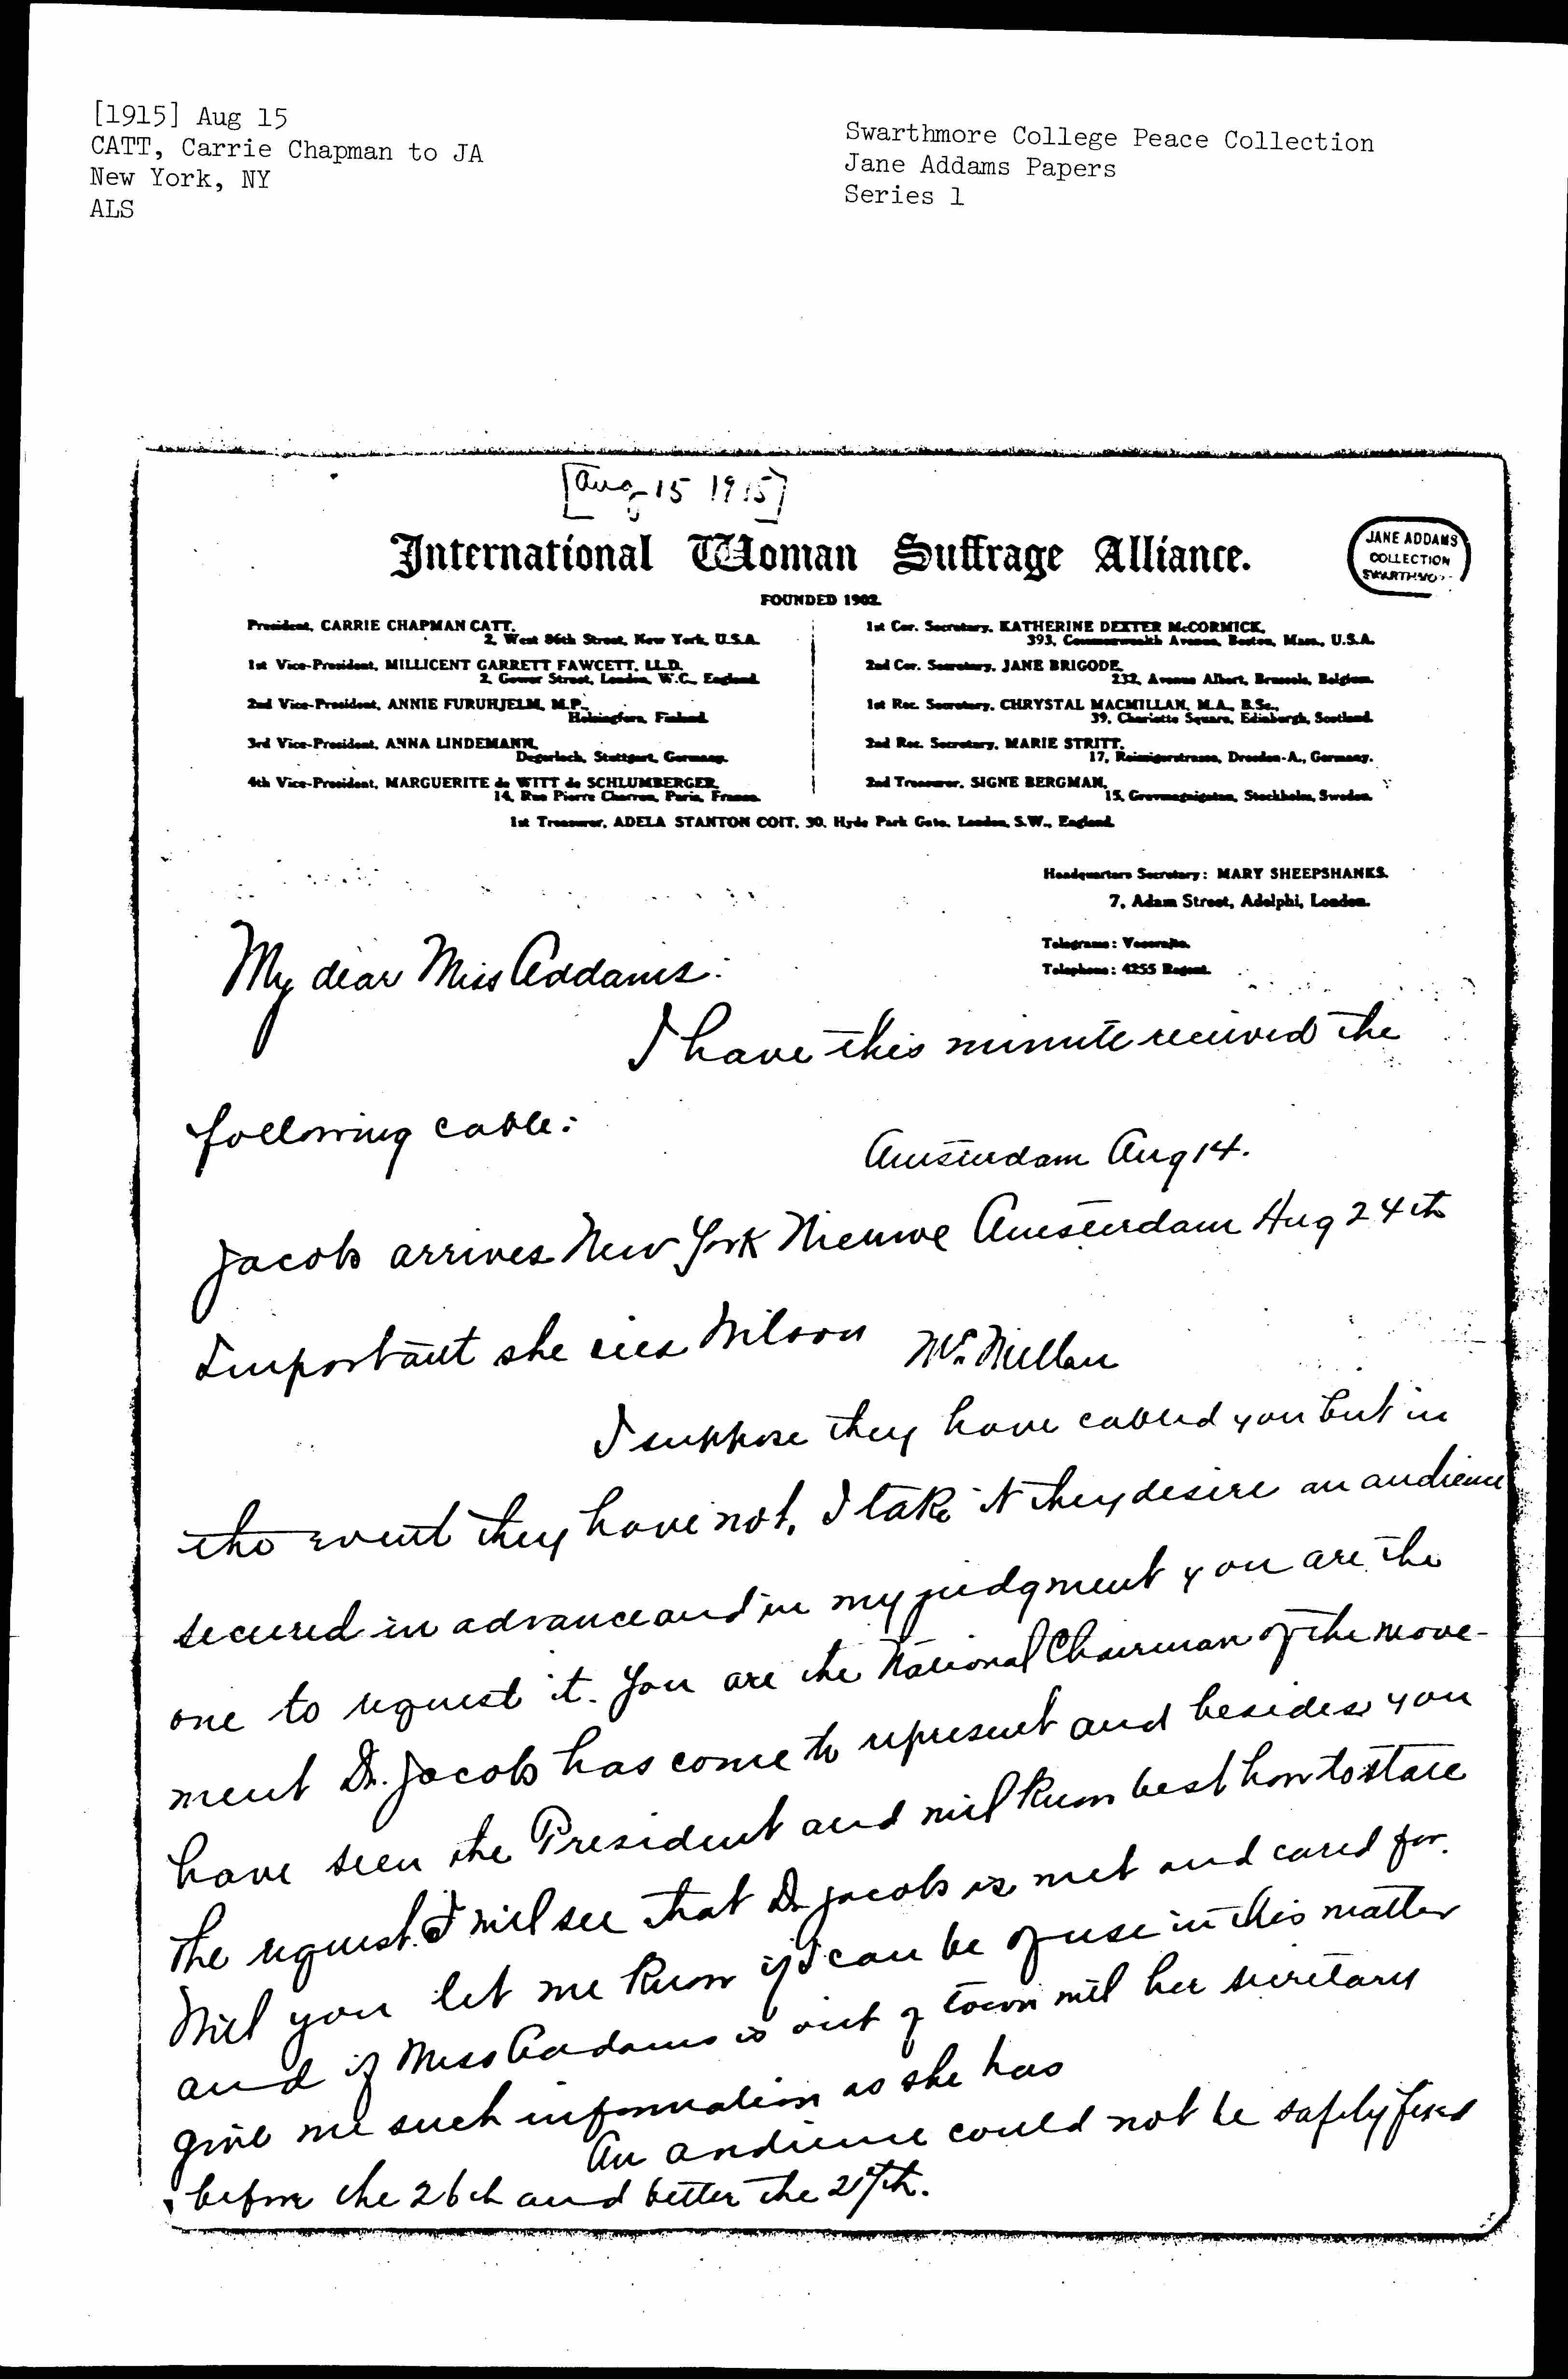 [1915] Aug 15
CATT, Carrie Chapman to JA
New York, NY
ALS
Swarthmore College Peace Collection
Jane Addams Papers
Series 1
[Aug 15 1915]
International Woman Suffrage Alliance.
JANE ADDAMS
COLLECTION
SWARTHMO
FOUNDED 1902.
President, CARRIE CHAPMAN CATT,
2, West 86th Street, New York, U.S.A.
1st Vice-President, MILLICENT GARRETT FAWCETT, LL.D.
2, Gower Street, London, W.C., England.
2nd Vice-President, ANNIE FURUHJELM, M.P.,
Helsingfors, Finland.
3rd Vice-President, ANNA LINDEMANN,
Degerloch, Stuttgart, Germany.
4th Vice-President, MARGUERITE de WITT de SCHLUMBERGER,
14, Rue Pierre Charron, Paris, France.
1st Cor. Secretary, KATHERINE DEXTER McCORMICK,
393, Commonwealth Avenue, Boston, Mass., U.S.A.
2nd Cor. Secretary, JANE BRIGODE,
232, Avenue Albert, Brussels, Belgium.
1st Rec. Secretary, CHRYSTAL MACMILLAN, M.A., B.Sc.,
39, Charlotte Square, Edinburgh, Scotland.
2nd Rec. Secretary, MARIE STRITT,
17, Reissigerstrasse, Dresden-A., Germany.
2nd Treasurer, SIGNE BERGMAN,
15, Stockholm, Sweden.
1st Treasurer, ADELA STANTON COIT, 30, Hyde Park Gate, London, S.W., England.
Headquarters Secretary: MARY SHEEPSHANKS.
7, Adam Street, Adelphi, London.
Telegrams: Vocorajto.
Telephone: 4255 Regent.
My dear Miss Addams:
I have this minute received the
following cable:
Amsterdam Aug 14.
Jacobs arrives New York Nieuwe Amsterdam Aug 24th
Important she sees Wilson McMillan
I suppose they have cabled you but in
the event they have not, I take it they desire an audience
secured in advance and in my judgment you are the
one to request it. You are the National Chairman of the move-
ment Dr. Jacobs has come to represent and besides you
have seen the President and will know best how to state
the request. I will see that Dr Jacobs is met and cared for.
Will you let me know if I can be of use in this matter
and if Miss Addams is out of town will her secretary
give me such information as she has
An audience could not be safely fixed
before the 26th and better the 27th.